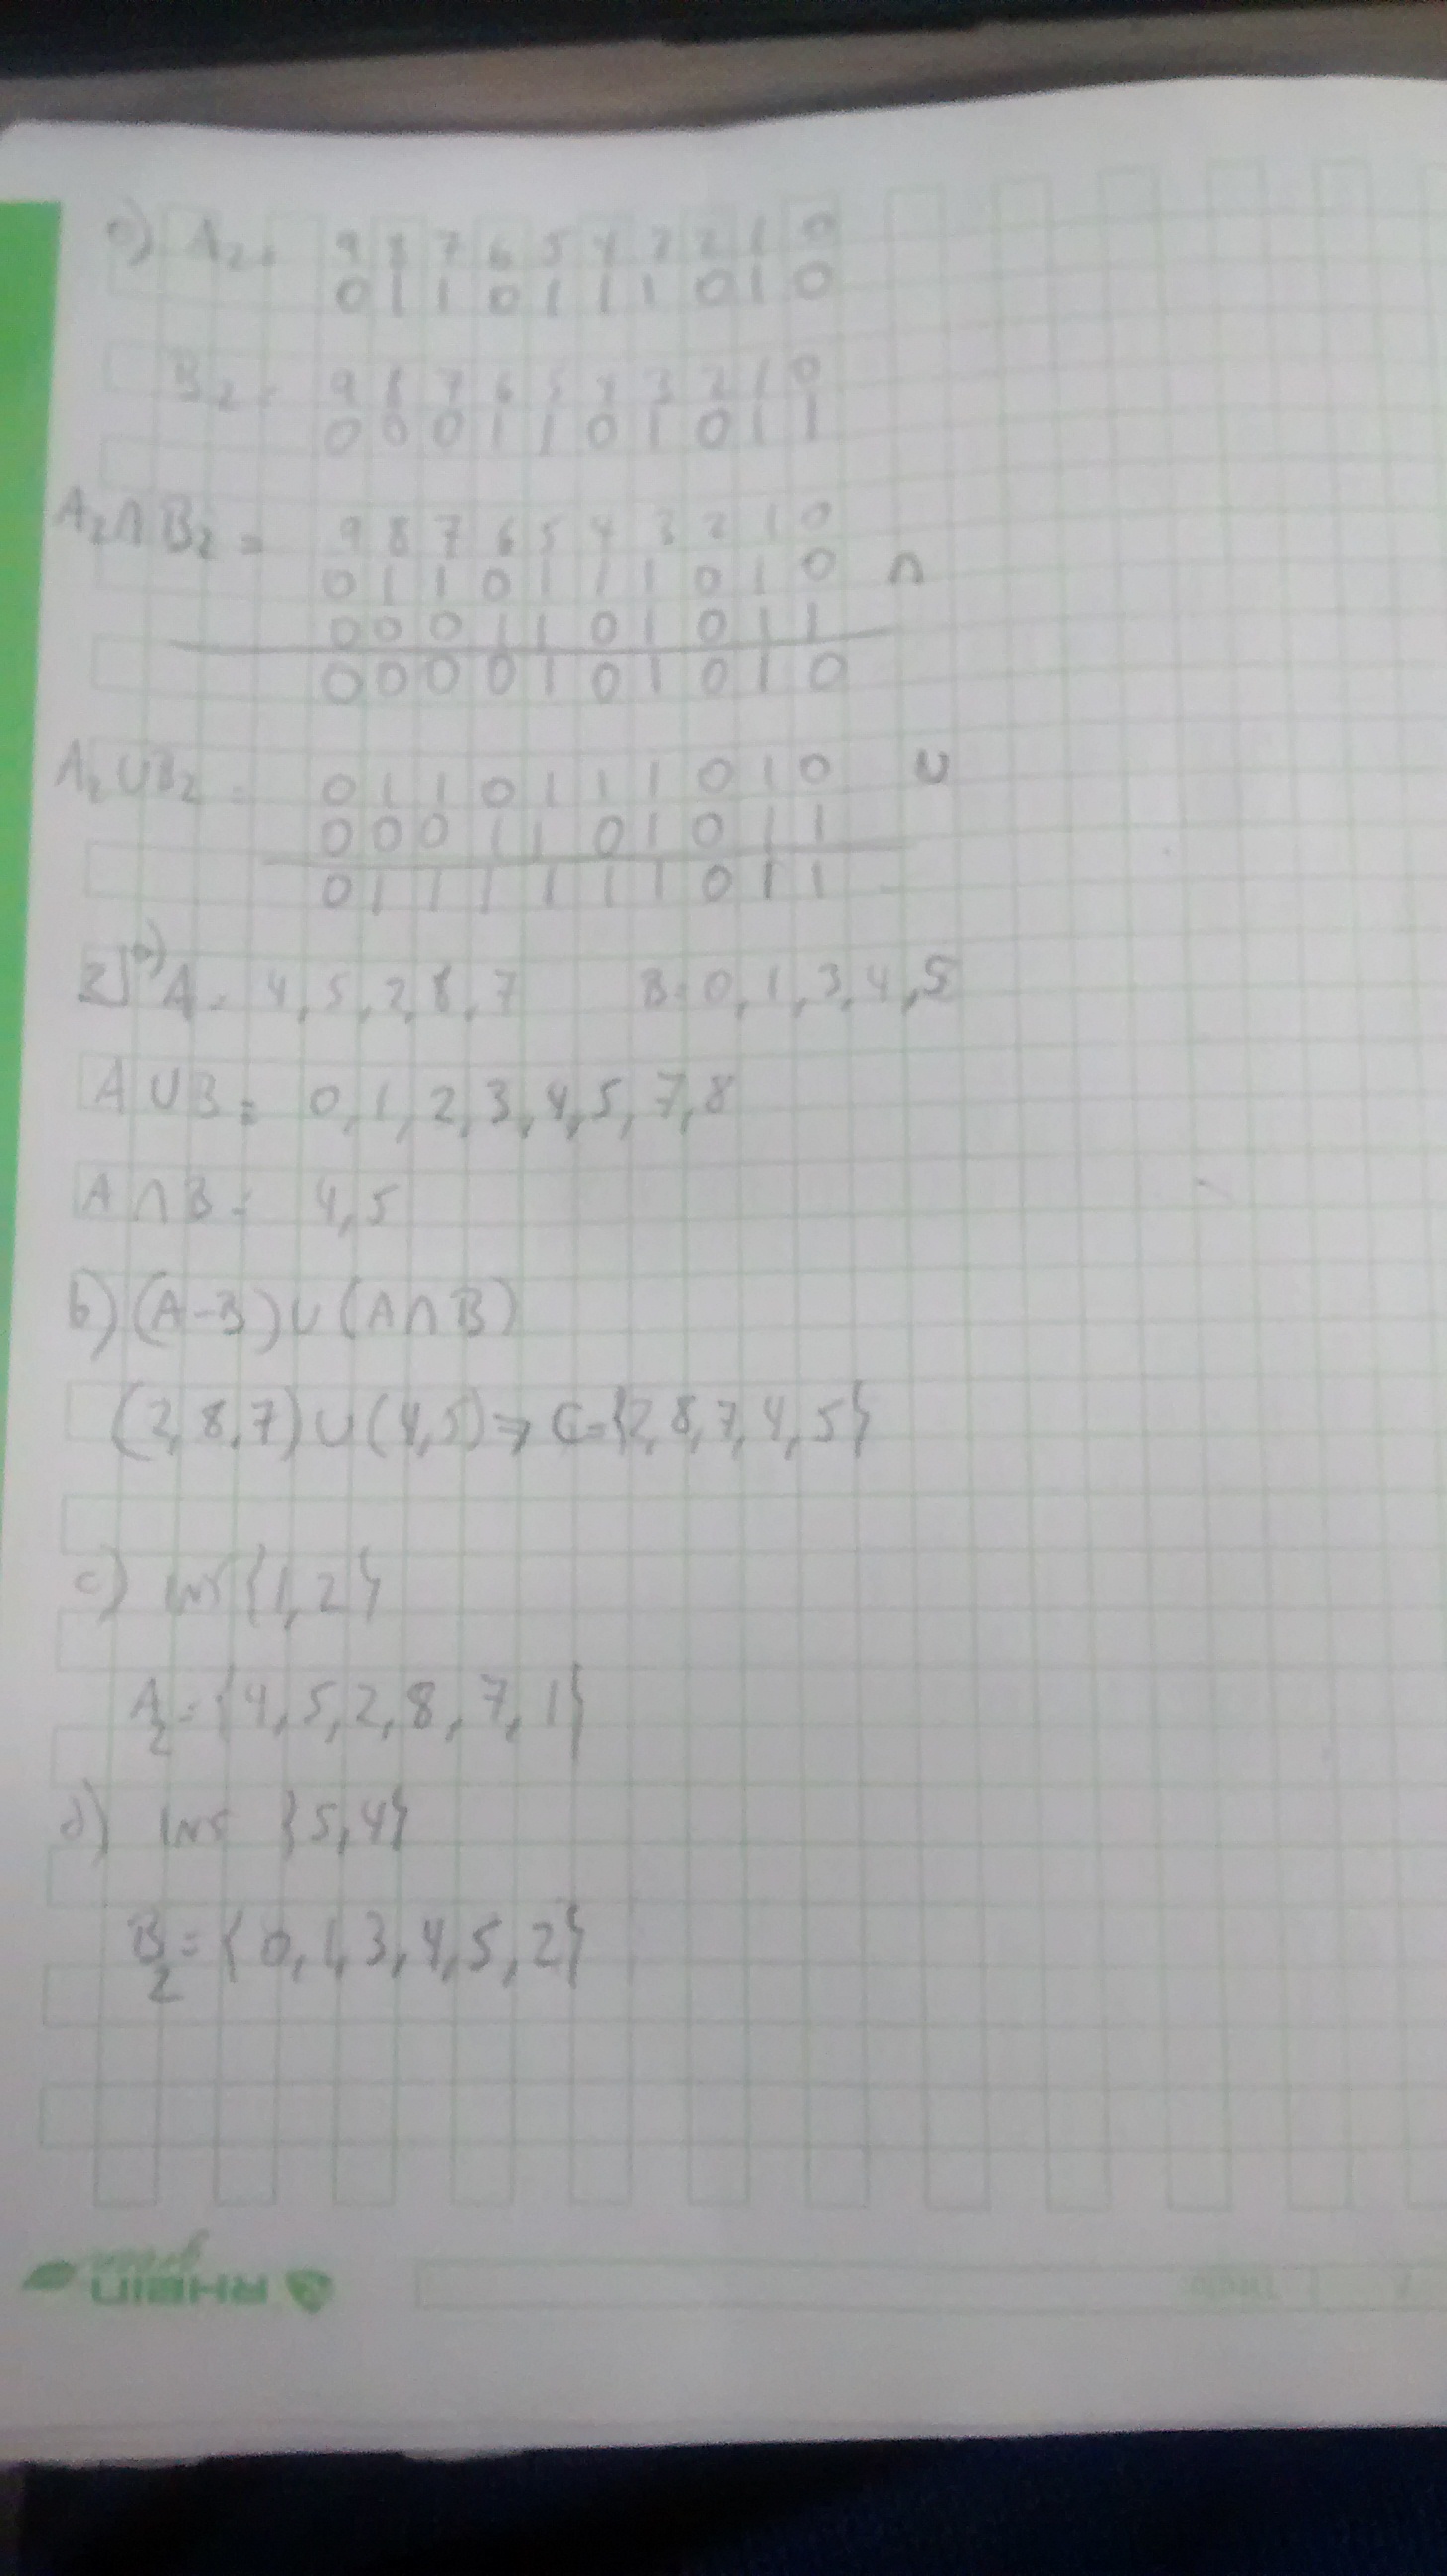 e) A₂ = 9 8 7 6 5 4 3 2 1 0
0 1 1 0 1 1 1 0 1 0
B₂ = 9 8 7 6 5 4 3 2 1 0
0 0 0 1 1 0 1 0 1 1
A₂∩B₂ = 9 8 7 6 5 4 3 2 1 0
0 1 1 0 1 1 1 0 1 0 ∩
0 0 0 1 1 0 1 0 1 1
0 0 0 0 1 0 1 0 1 0
A₂∪B₂ = 0 1 1 0 1 1 1 0 1 0 ∪
0 0 0 1 1 0 1 0 1 1
0 1 1 1 1 1 1 0 1 1
2] a) A = 4, 5, 2, 8, 7 B = 0, 1, 3, 4, 5
A ∪ B = 0, 1, 2, 3, 4, 5, 7, 8
A ∩ B = 4, 5
b) (A-B) ∪ (A∩B)
(2, 8, 7) ∪ (4, 5) => C = {2, 8, 7, 4, 5}
c) INS {1, 2}
A₂ = {4, 5, 2, 8, 7, 1}
d) INS {5, 4}
B₂ = {0, 1, 3, 4, 5, 2}
RHEIN